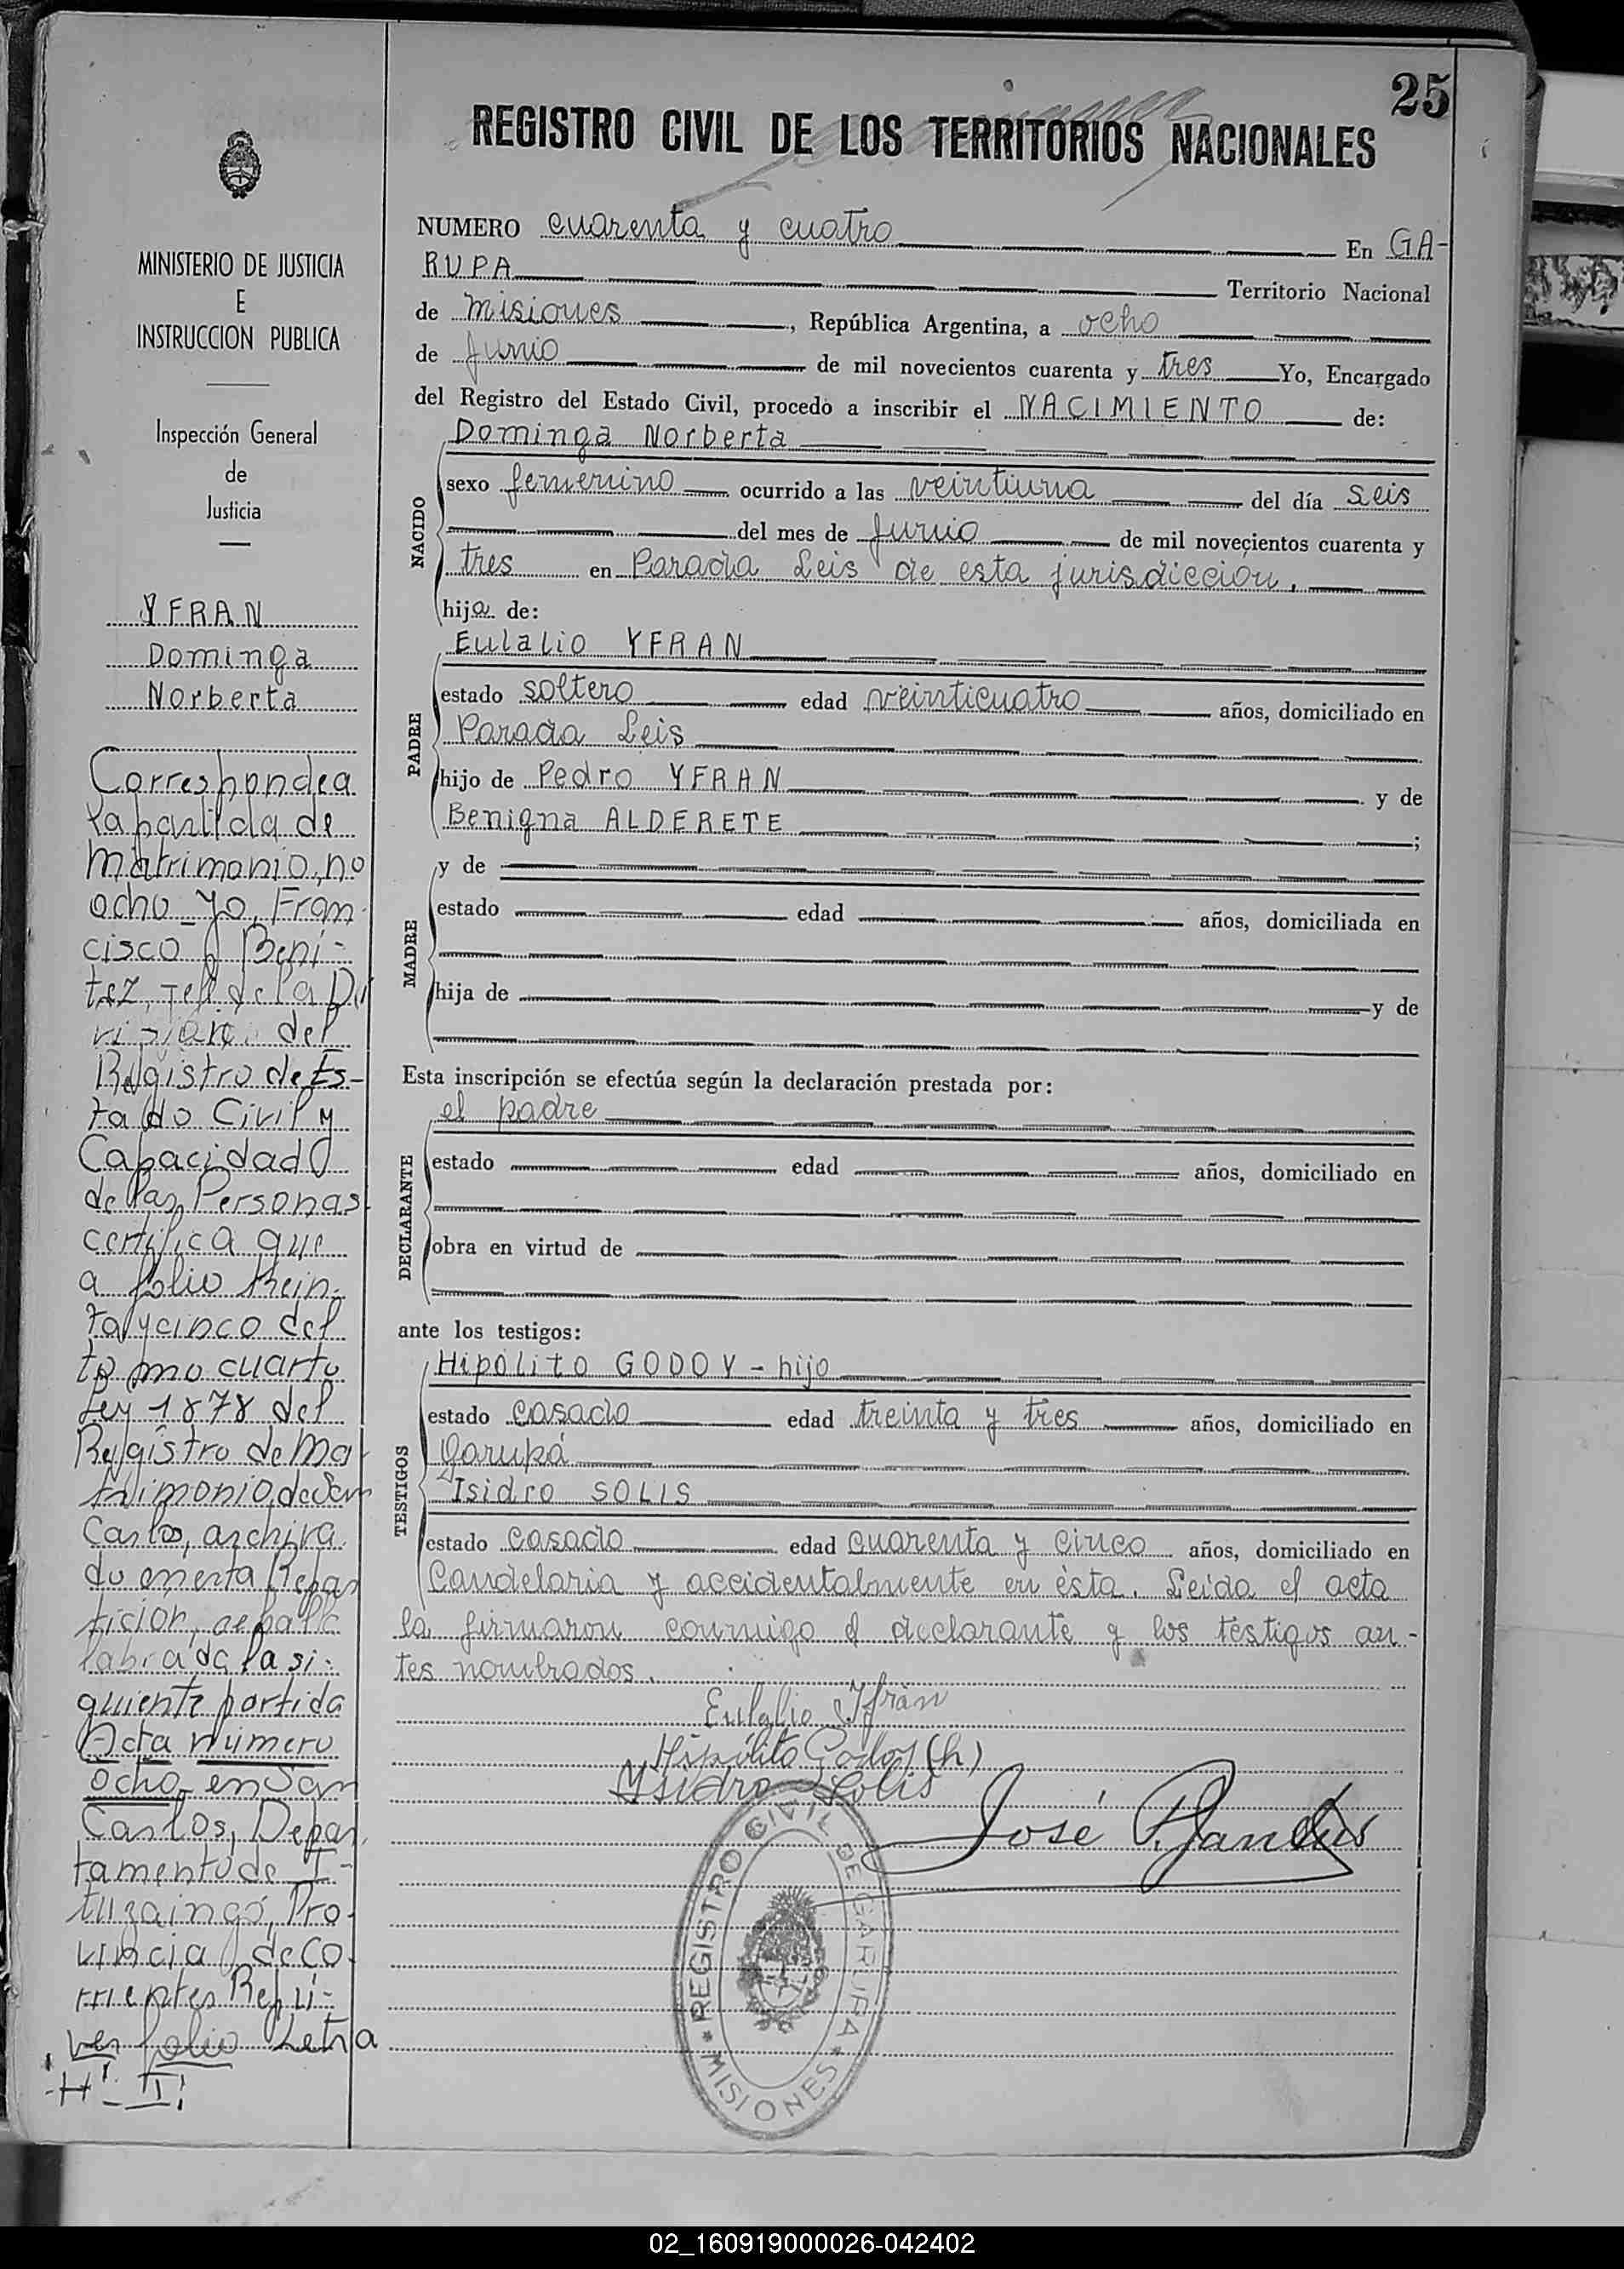 25
REGISTRO CIVIL DE LOS TERRITORIOS NACIONALES
MINISTERIO DE JUSTICIA
E
INSTRUCCION PUBLICA
Inspección General
de
Justicia
YFRAN
Dominga
Norberta
Corresponde a
la partida de
matrimonio, no
ocho Yo, Fran-
cisco Beni-
tez, Jefe de la Di
vision del
Registro de Es-
tado Civil y
Capacidad
de las Personas
certifica que
a folio trein-
ta y cinco del
tomo cuarto
Ley 1878 del
Registro de Ma
trimonio de San
Carlos, archiva
do en esta Repar
ticion, se halla
labrada la si-
guiente partida
Acta número
ocho en San
Carlos, Depar
tamento de I-
tuzaingó, Pro-
vincia de Co-
rrientes Repú-
ver folio Letra
"H" - I!
NUMERO cuarenta y cuatro En GA-
RUPA Territorio Nacional
de Misiones, República Argentina, a ocho
de Junio de mil novecientos cuarenta y tres Yo, Encargado
del Registro del Estado Civil, procedo a inscribir el NACIMIENTO de:
NACIDO
Dominga Norberta
sexo femenino ocurrido a las veintiuna del día seis
del mes de Junio de mil novecientos cuarenta y
tres en Parada Leis de esta jurisdicción.
hija de:
PADRE
Eulalio YFRAN
estado soltero edad veinticuatro años, domiciliado en
Parada Leis
hijo de Pedro YFRAN y de
Benigna ALDERETE ;
MADRE
y de
estado edad años, domiciliada en
hija de y de
Esta inscripción se efectúa según la declaración prestada por:
DECLARANTE
el padre
estado edad años, domiciliado en
obra en virtud de
ante los testigos:
TESTIGOS
Hipólito GODOY - hijo
estado casado edad treinta y tres años, domiciliado en
Garupá
Isidro SOLIS
estado casado edad cuarenta y cinco años, domiciliado en
Candelaria y accidentalmente en ésta. Leida el acta
la firmaron conmigo el declarante y los testigos an-
tes nombrados.
Eulalio Yfrán
Hipólito Godoy (h)
Ysidro Solis
José
REGISTRO CIVIL DE GARUPA
* MISIONES *
02_160919000026-042402